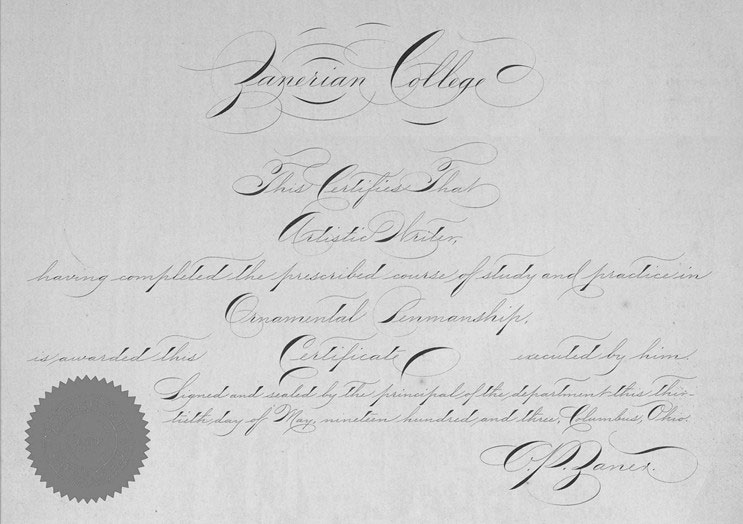 Zanerian College
This Certifies That
Artistic Writer,
having completed the prescribed course of study and practice in
Ornamental Penmanship,
is awarded this Certificate executed by him.
Signed and sealed by the principal of the department this thir-
tieth day of May, nineteen hundred and three, Columbus, Ohio.
C. P. Zaner.